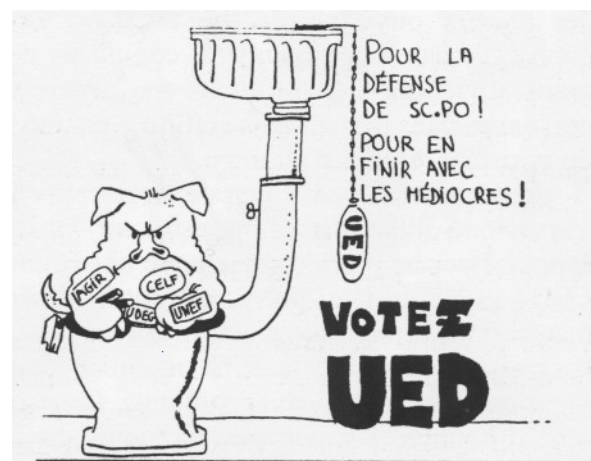 POUR LA
DÉFENSE
DE SC.PO!
POUR EN
FINIR AVEC
LES MÉDIOCRES!
UED
AGIR
CELF
UDEG
UNEF
VOTEZ
UED